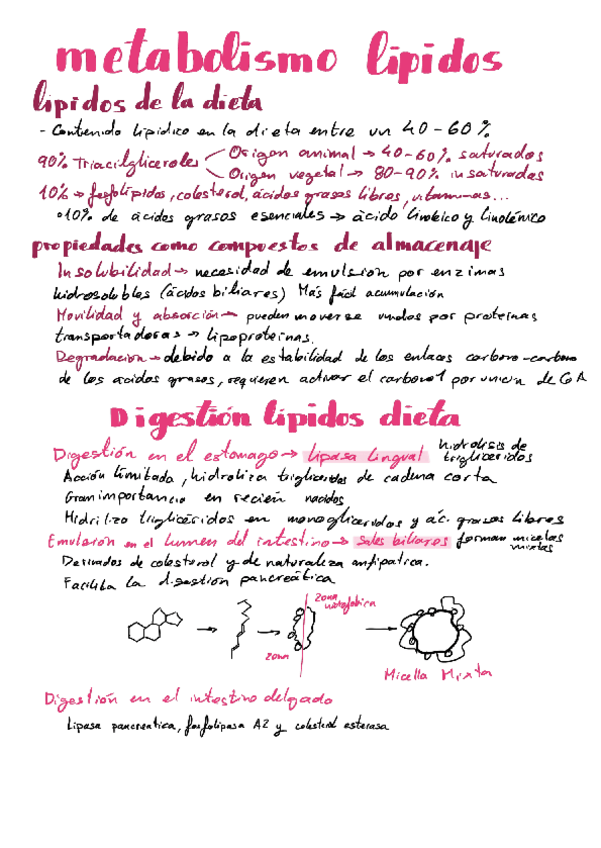 metabolismo lípidos
lípidos de la dieta
- Contenido lipídico en la dieta entre un 40-60%
90% Triacilgliceroles Origen animal → 40-60% saturados
Origen vegetal → 80-90% insaturadas
10% → fosfolípidos, colesterol, ácidos grasos libres, vitaminas...
•10% de ácidos grasos esenciales → ácido linoleico y linolénico
propiedades como compuestos de almacenaje
Insolubilidad → necesidad de emulsión por enzimas
hidrosolubles (ácidos biliares) Más fácil acumulación
Movilidad y absorción → pueden moverse unidos por proteínas
transportadoras → lipoproteínas.
Degradación → debido a la estabilidad de los enlaces carbono-carbono
de los ácidos grasos, requieren activar el carbono 1 por unión de CoA
Digestión lípidos dieta
Digestión en el estomago → lipasa lingual hidrolisis de triglicéridos
Acción limitada, hidroliza triglicéridos de cadena corta
Gran importancia en recien nacidos
Hidroliza triglicéridos en monogliceridos y ác. grasos libres
Emulsión en el lumen del intestino → sales biliares forman micelas mixtas
Derivados de colesterol y de naturaleza anfipatica.
Facilita la digestión pancreática
zona
zona
Micella Mixta
Digestión en el intestino delgado
Lipasa pancreatica, fosfolipasa A2 y colesterol esterasa